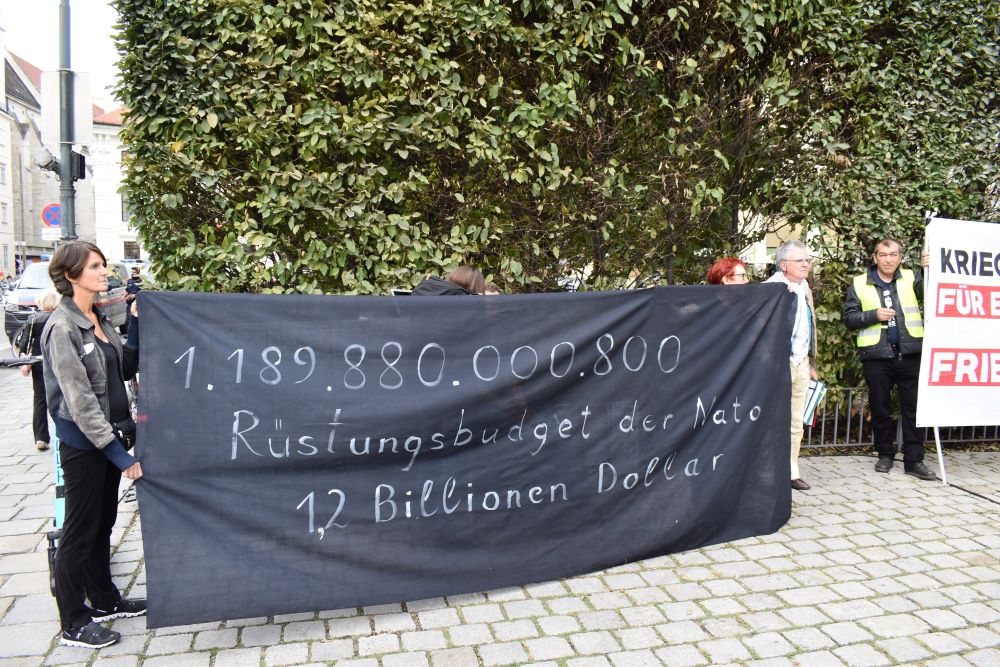 1.189.880.000.800
Rüstungsbudget der Nato
1,2 Billionen Dollar
KRIEG
FÜR
FRIE